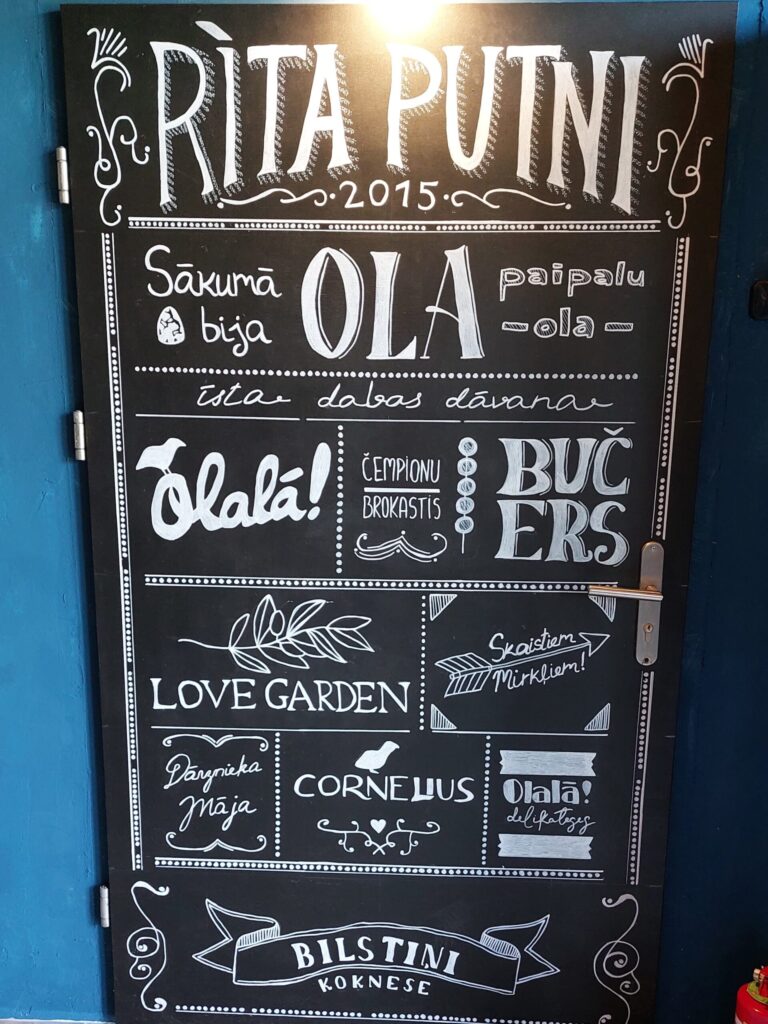 RÌTA PUTNI
2015
Sākumā
bija
OLA
paipalu
-ola-
īsta dabas dāvana
Olalā!
ČEMPIONU
BROKASTIS
BUČ
ERS
LOVE GARDEN
Skaistiem
Mirkļiem!
Dārznieka
Māja
CORNELIUS
Olalā!
delikateses
BILSTIŅI
KOKNESE